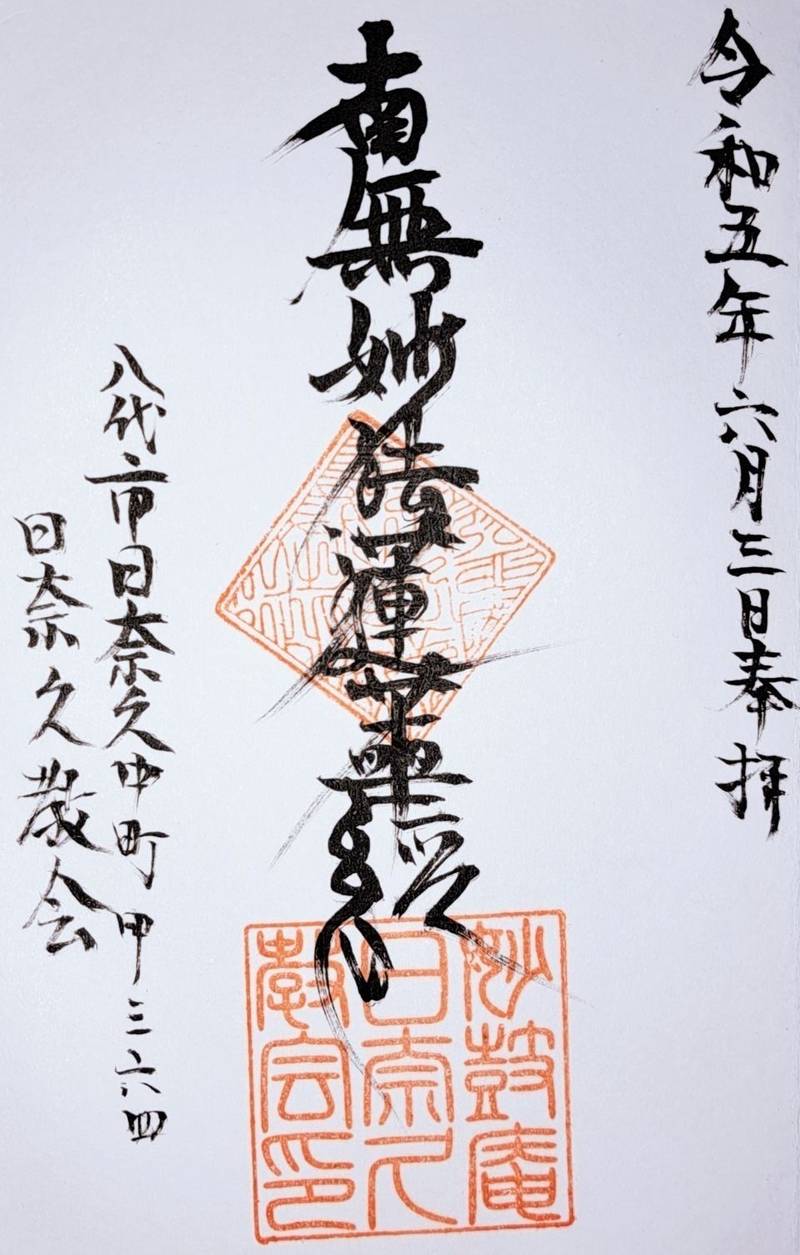 令和五年六月三日奉拝
南無妙法蓮華経
八代市日奈久中町甲三六四
日奈久教会
妙鼓庵
日奈久
教会印